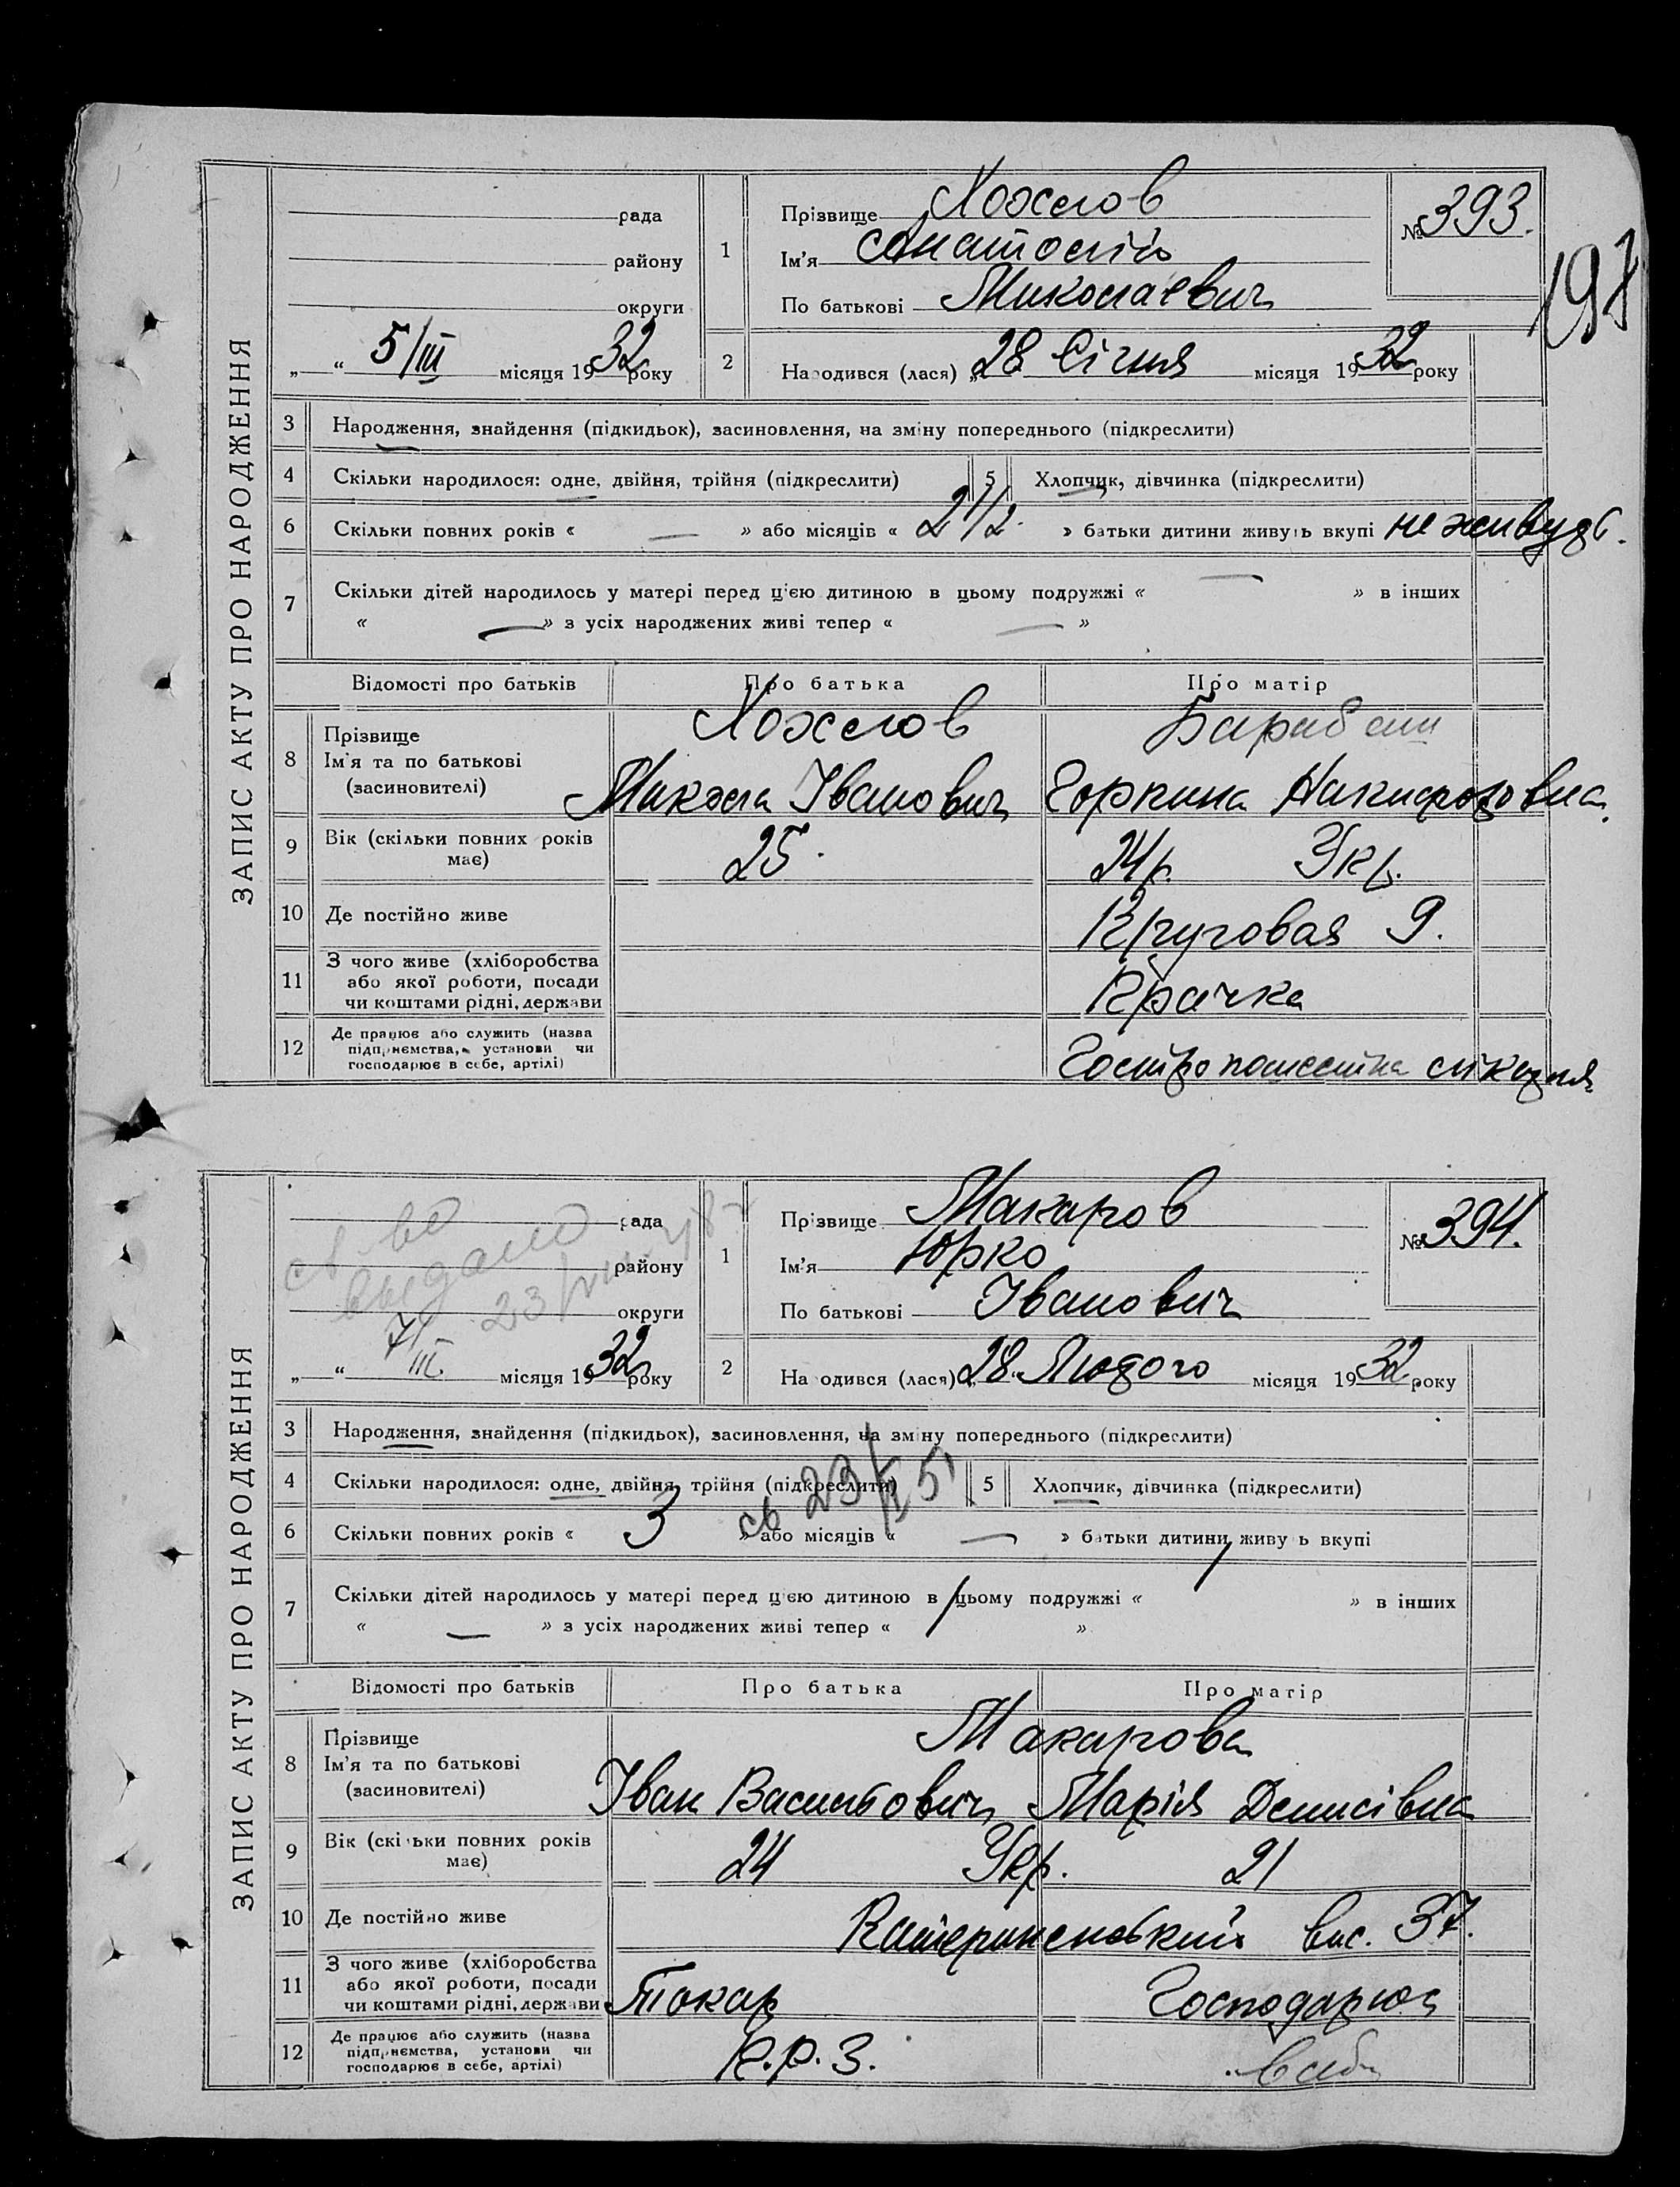 ЗАПИС АКТУ ПРО НАРОДЖЕННЯ
рада
району
округи
„ “ 5/III місяця 1932 року
1
Прізвище Хохлов
Ім'я Анатолій
По батькові Миколаевич
№ 393.
197
2
Народився (лася) „28 Січня місяця 1932 року
3 Народження, знайдення (підкидьок), засиновлення, на зміну попереднього (підкреслити)
4 Скільки народилося: одне, двійня, трійня (підкреслити)
5 Хлопчик, дівчинка (підкреслити)
6 Скільки повних років « — » або місяців « 2 1/2 » батьки дитини живуть вкупі не живуть.
7 Скільки дітей народилось у матері перед цією дитиною в цьому подружжі « — » в інших
« — » з усіх народжених живі тепер « — »
Відомості про батьків Про батька Про матір
8 Прізвище
Ім'я та по батькові
(засиновителі)
Хохлов
Микола Іванович
Барабаш
Горпина Никифоровна
9 Вік (скільки повних років має)
25.
24 р. Укр.
10 Де постійно живе
Круговая 9.
11 З чого живе (хліборобства
або якої роботи, посади
чи коштами рідні, держави
Прачка
12 Де працює або служить (назва
підприємства, установи чи
господарює в себе, артілі)
Гостропошесна лікарня
ЗАПИС АКТУ ПРО НАРОДЖЕННЯ
рада
району
округи
св во
выдано
23/VIII
„ “ 7/III. місяця 1932 року
1
Прізвище Макаров
Ім'я Юрко
По батькові Іванович
№ 394.
2
Народився (лася) „28. Лютого місяця 1932 року
3 Народження, знайдення (підкидьок), засиновлення, на зміну попереднього (підкреслити)
4 Скільки народилося: одне, двійня, трійня (підкреслити)
5 Хлопчик, дівчинка (підкреслити)
6 Скільки повних років « 3 » або місяців « — » батьки дитини живуть вкупі
7 Скільки дітей народилось у матері перед цією дитиною в цьому подружжі « » в інших
« — » з усіх народжених живі тепер « »
Відомості про батьків Про батька Про матір
8 Прізвище
Ім'я та по батькові
(засиновителі)
Макарова
Іван Васильович Марія Денисівна
9 Вік (скільки повних років має)
24 Укр. 21
10 Де постійно живе
вис. 37.
11 З чого живе (хліборобства
або якої роботи, посади
чи коштами рідні, держави
Токар
Господарює
12 Де працює або служить (назва
підприємства, установи чи
господарює в себе, артілі)
П.Р.З.